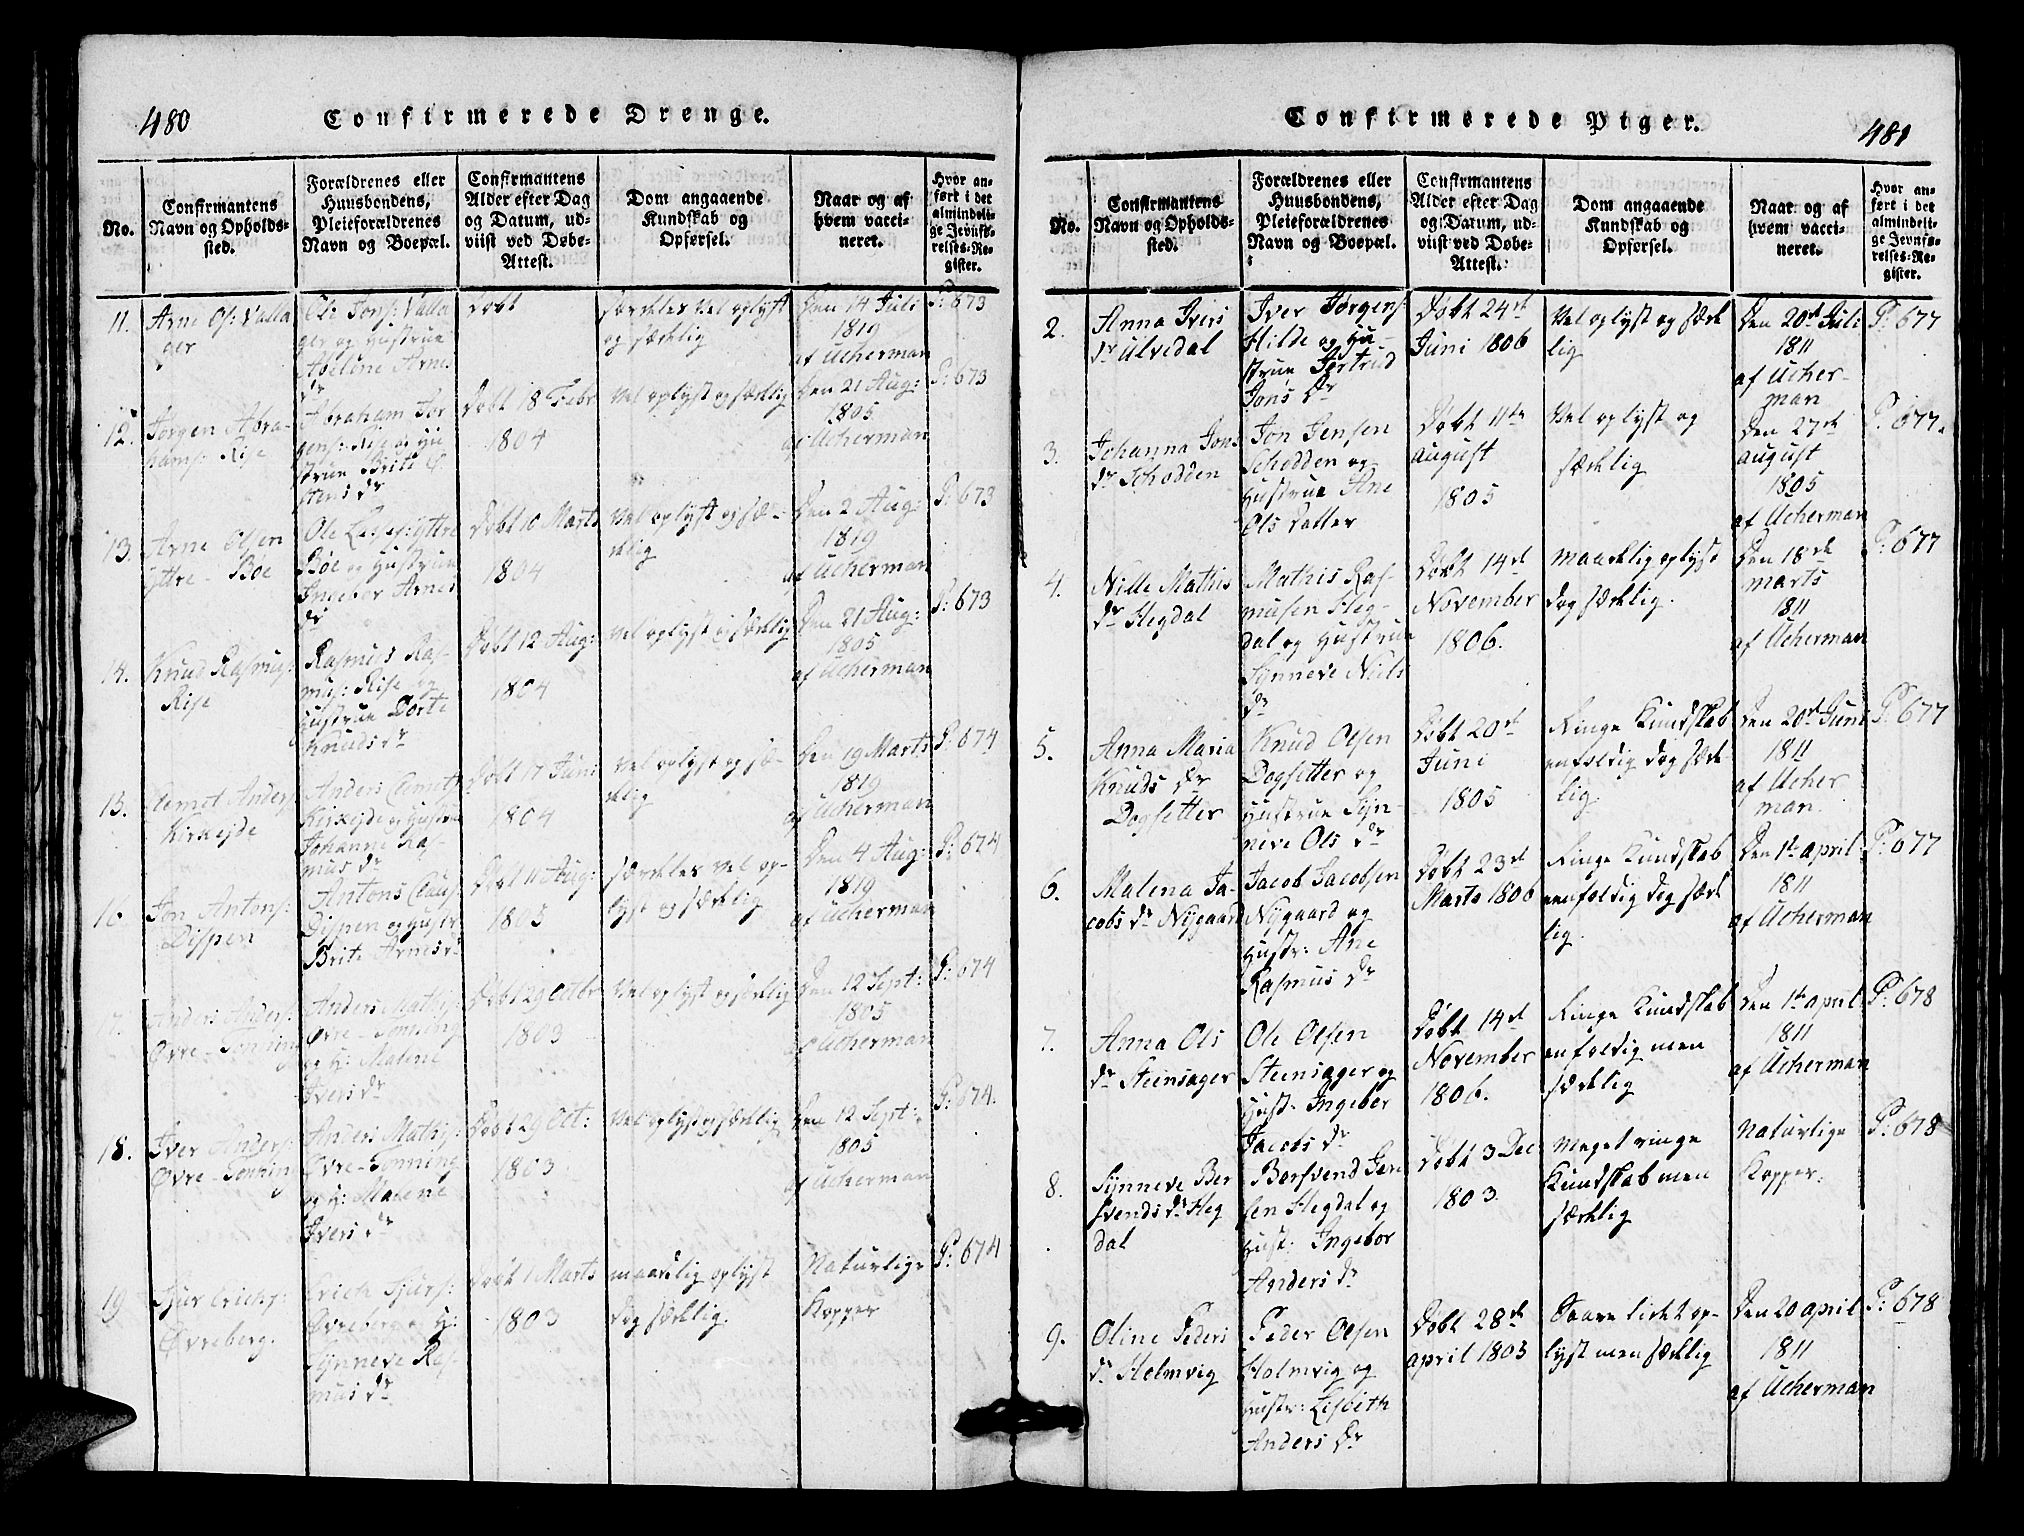 480
Confirmerede Drenge.
No.
Confirmantens
Navn og Opholds-
sted.
Forældrenes eller
Huusbondens,
Pleieforældrenes
Navn og Boepæl.
Confirmantens
Alder efter Dag
og Datum, ud-
viist ved Døbe-
Attest.
Dom angaaende
Kundskab og
Opførsel.
Naar og af
hvem vacci-
neret.
Hvor an-
ført i det
almindeli-
ge Jevnfø-
relses-Re-
gister.
11.
Arne Ols: Valla
ger
Ole Jons: Valla
ger og Hustrue
Abelone Arnes
dr
Døbt
særdeles vel oplyst
og sædelig
Den 14 Juli
1819
af Ucherman
P: 673
12.
Jørgen Abra-
hams: Rise
Abraham Jør
gens: Rise og Hu
strue Brite
dr
Døbt 18 Febr
1804
Vel oplyst og sædelig
Den 21 Aug:
1805
af Ucherman
P: 673
13.
Arne Olsen
Yttre-Bøe
Ole Yttre
Bøe og Hustrue
Ingebor Arnes
dr
Døbt 10 Marts
1804
Vel oplyst og sæ-
delig
Den 2 Aug:
1819
af Ucherman
P: 673
14.
Knud Rasmus:
Rise
Rasmus Ras-
mus: Rise og
Hustrue Dorte
Knuds dr
Døbt 12 Aug:
1804
Vel oplyst og sædelig
Den 21 Aug:
1805
af Ucherman
P: 673
15.
Clemet Anders:
Kirkejde
Anders Clemets
Kirkejde og Hustrue
Johanne Ras-
mus dr
Døbt 17 Juni
1804
Vel oplyst og sæ-
delig
Den 19 Marts
1819
af Ucherman
P: 674
16
Jon Antons:
Dispen
Antons Claus:
Dispen og Hustr
Brite Arnes dr
Døbt 11 Aug:
1803
særdeles vel op-
lyst og sædelig
Den 4 Aug:
1819
af Ucherman
P: 674
17.
Anders Anders:
Øvre-Tonning
Anders Mathis:
Øvre-Tonning
og H: Malene
Ivers dr
Døbt 29 Octbr
1803
Vel oplyst og sædelig
Den 12 Sept:
1805
af Ucherman
P: 674
18.
Iver Anders:
Øvre-Tonning
Anders Mathis:
Øvre-Tonning
og H: Malene
Ivers dr
Døbt 29 Oct:
1803
Vel oplyst og sædelig
Den 12 Sept:
1805
af Ucherman
P: 674.
19
Sjur Erichs:
Øvreberg.
Erich Sjurs:
Øvreberg og H:
Synneve Ras-
mus dr
Døbt 1 Marts
1803
maadelig oplyst
dog sædelig.
Naturlige
Kopper
P: 674
Confirmerede Piger.
481
No.
Confirmantens
Navn og Opholds-
sted.
Forældrenes eller
Huusbondens,
Pleieforældrenes
Navn og Boepæl.
Confirmantens
Alder efter Dag
og Datum, ud-
viist ved Døbe-
Attest.
Dom angaaende
Kundskab og
Opførsel.
Naar og af
hvem vacci-
neret.
Hvor an-
ført i det
almindeli-
ge Jevnfø-
relses-Re-
gister.
2.
Anna Ivers
dr Ulvedal
Iver Jørgens:
Hilde og Hu-
strue Gertrud
Jons dr
Døbt 24de
Juni 1806
Vel oplyst og sæde
lig
Den 20de Juli
1811
af Ucher-
man
P: 677
3.
Johanna Jons
dr Schodden
Jon Jensen
Schodden og
Hustrue Ane
Ols datter
Døbt 11te
august
1805
Vel oplyst og
sædelig
Den 27de
august
1805
af Ucherman
P. 677.
4.
Nille Mathis
dr Hegdal
Mathis Ras-
musen Heg-
dal og Hustrue
Synneve Niels
dr
Døbt 14de
November
1806.
maadelig oplyst
dog sædelig.
Den 18de
marts
1811
af Ucherman
P: 677
5.
Anna Maria
Knuds dr
Dogsetter
Knud Olsen
Dogsetter og
Hustrue Syn-
neve Ols dr
Døbt 20de
Juni
1805
Ringe Kundskab
enfoldig dog sæde
lig
Den 20de Juni
1811
af Ucher
man.
P: 677
6.
Malena Ja-
cobs dr Nygaard
Jacob Jacobsen
Nygaard og
Hustr: Ane
Rasmus dr
Døbt 23de
Marts 1806
Ringe Kundskab
eenfoldig dog sæde
lig.
Den 1te april
1811
af Ucherman
P: 677
7.
Anna Ols
dr Steensager
Ole Olsen
Steensager og
Hust. Ingeber
Jacobs dr
Døbt 14de
November
1806.
Ringe Kundskab
enfoldig men
sædelig
Den 1te april
1811
af Ucherman
P: 678
8.
Synneve Ber
svends dr Heg
dal
Bersvend Jen
sen Hegdal og
Hust: Ingebor
Anders dr
Døbt 3 Dec
1803.
Meget ringe
Kundskab men
sædelig
Naturlige
Kopper.
P: 678
9.
Oline Peders
dr Holmvig
Peder Olsen
Holmvig og
Hustr: Lisbeth
Anders dr
Døbt 28de
april 1803
Saare lidet op-
lyst men sædelig
Den 20 april
1811
af Ucherman
P: 678